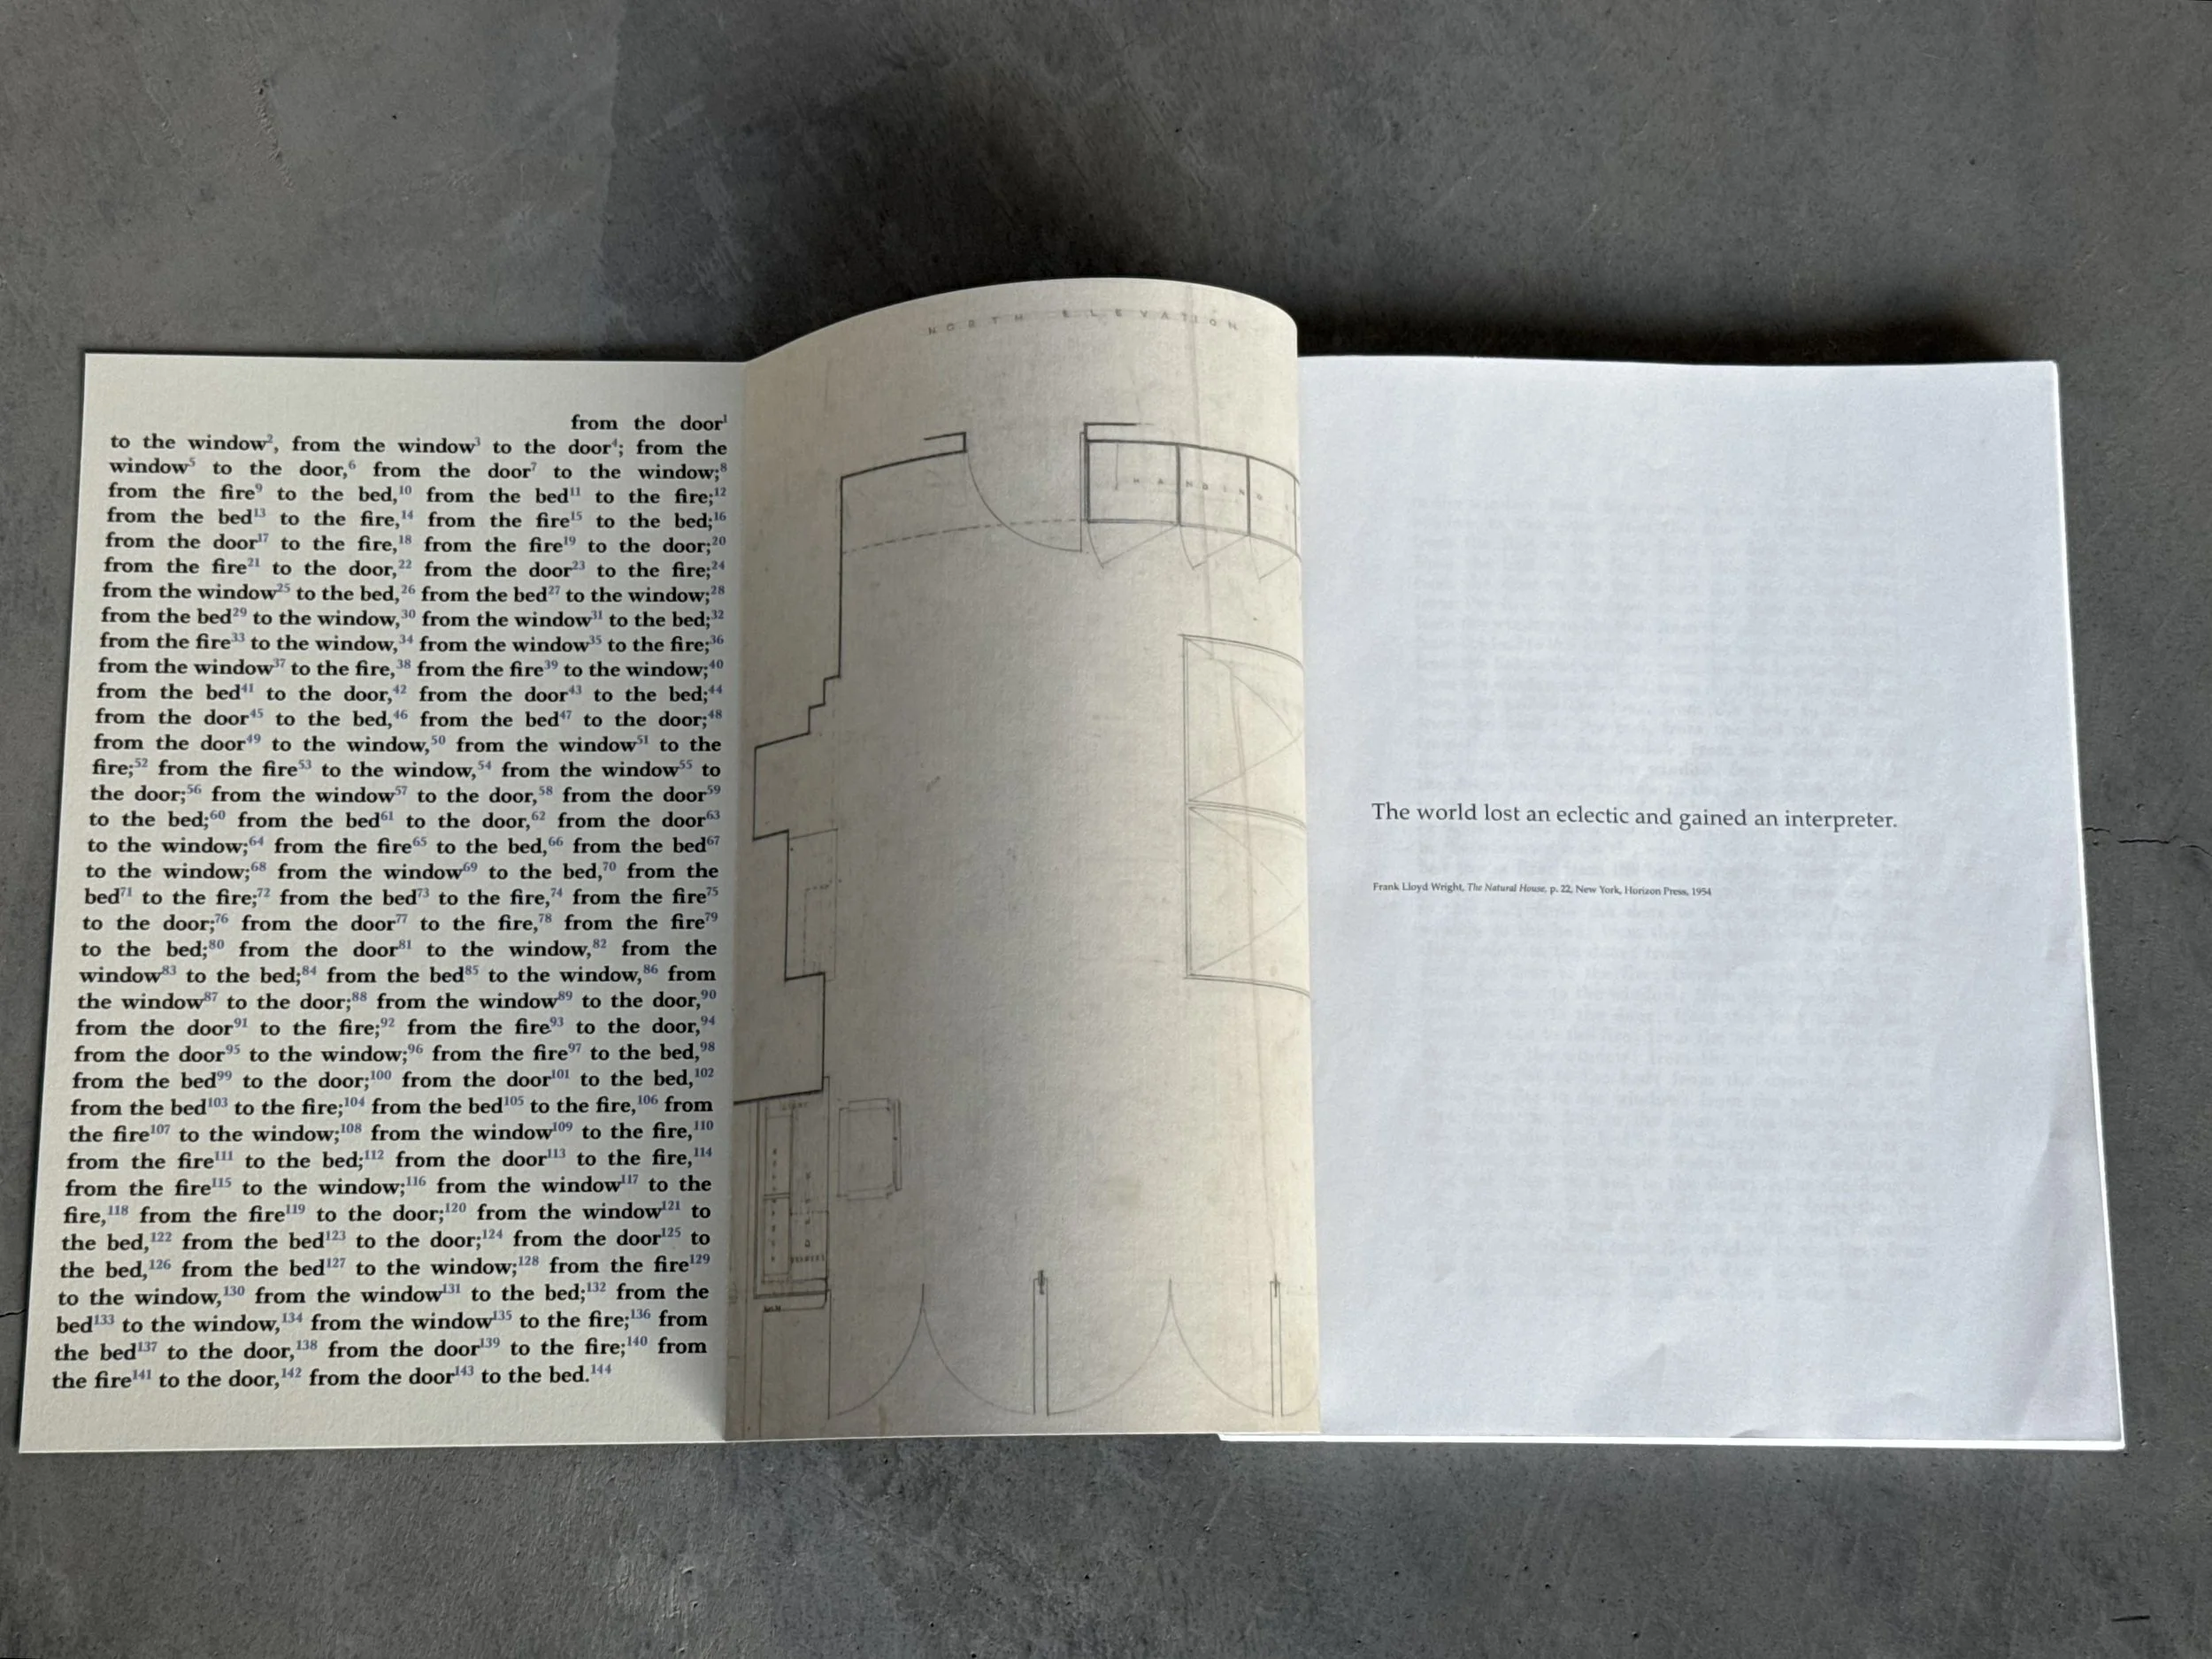 from the door¹
to the window², from the window³ to the door⁴; from the
window⁵ to the door,⁶ from the door⁷ to the window;⁸
from the fire⁹ to the bed,¹⁰ from the bed¹¹ to the fire;¹²
from the bed¹³ to the fire,¹⁴ from the fire¹⁵ to the bed;¹⁶
from the door¹⁷ to the fire,¹⁸ from the fire¹⁹ to the door;²⁰
from the fire²¹ to the door,²² from the door²³ to the fire;²⁴
from the window²⁵ to the bed,²⁶ from the bed²⁷ to the window;²⁸
from the bed²⁹ to the window,³⁰ from the window³¹ to the bed;³²
from the fire³³ to the window,³⁴ from the window³⁵ to the fire;³⁶
from the window³⁷ to the fire,³⁸ from the fire³⁹ to the window;⁴⁰
from the bed⁴¹ to the door,⁴² from the door⁴³ to the bed;⁴⁴
from the door⁴⁵ to the bed,⁴⁶ from the bed⁴⁷ to the door;⁴⁸
from the door⁴⁹ to the window,⁵⁰ from the window⁵¹ to the
fire;⁵² from the fire⁵³ to the window,⁵⁴ from the window⁵⁵ to
the door;⁵⁶ from the window⁵⁷ to the door,⁵⁸ from the door⁵⁹
to the bed;⁶⁰ from the bed⁶¹ to the door,⁶² from the door⁶³
to the window;⁶⁴ from the fire⁶⁵ to the bed,⁶⁶ from the bed⁶⁷
to the window;⁶⁸ from the window⁶⁹ to the bed,⁷⁰ from the
bed⁷¹ to the fire;⁷² from the bed⁷³ to the fire,⁷⁴ from the fire⁷⁵
to the door;⁷⁶ from the door⁷⁷ to the fire,⁷⁸ from the fire⁷⁹
to the bed;⁸⁰ from the door⁸¹ to the window,⁸² from the
window⁸³ to the bed;⁸⁴ from the bed⁸⁵ to the window,⁸⁶ from
the window⁸⁷ to the door;⁸⁸ from the window⁸⁹ to the door,⁹⁰
from the door⁹¹ to the fire;⁹² from the fire⁹³ to the door,⁹⁴
from the door⁹⁵ to the window;⁹⁶ from the fire⁹⁷ to the bed,⁹⁸
from the bed⁹⁹ to the door;¹⁰⁰ from the door¹⁰¹ to the bed,¹⁰²
from the bed¹⁰³ to the fire;¹⁰⁴ from the bed¹⁰⁵ to the fire,¹⁰⁶ from
the fire¹⁰⁷ to the window;¹⁰⁸ from the window¹⁰⁹ to the fire,¹¹⁰
from the fire¹¹¹ to the bed;¹¹² from the door¹¹³ to the fire,¹¹⁴
from the fire¹¹⁵ to the window;¹¹⁶ from the window¹¹⁷ to the
fire,¹¹⁸ from the fire¹¹⁹ to the door;¹²⁰ from the window¹²¹ to
the bed,¹²² from the bed¹²³ to the door;¹²⁴ from the door¹²⁵ to
the bed,¹²⁶ from the bed¹²⁷ to the window;¹²⁸ from the fire¹²⁹
to the window,¹³⁰ from the window¹³¹ to the bed;¹³² from the
bed¹³³ to the window,¹³⁴ from the window¹³⁵ to the fire;¹³⁶ from
the bed¹³⁷ to the door,¹³⁸ from the door¹³⁹ to the fire;¹⁴⁰ from
the fire¹⁴¹ to the door,¹⁴² from the door¹⁴³ to the bed.¹⁴⁴
NORTH ELEVATION
HANGING
The world lost an eclectic and gained an interpreter.
Frank Lloyd Wright, The Natural House, p. 22, New York, Horizon Press, 1954